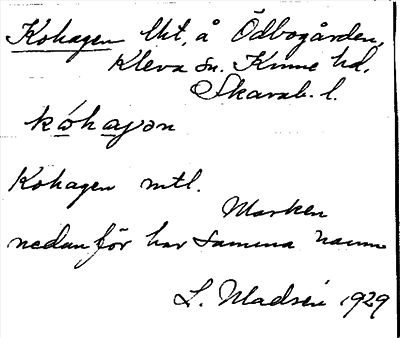 Kohagen lht. å Ödbogården,
Kleva sn. Kinne hd.
Skarab. l.
kóhaɡən
Kohagen mtl.
Marken
nedanför har samma namn
L. Madsén 1929